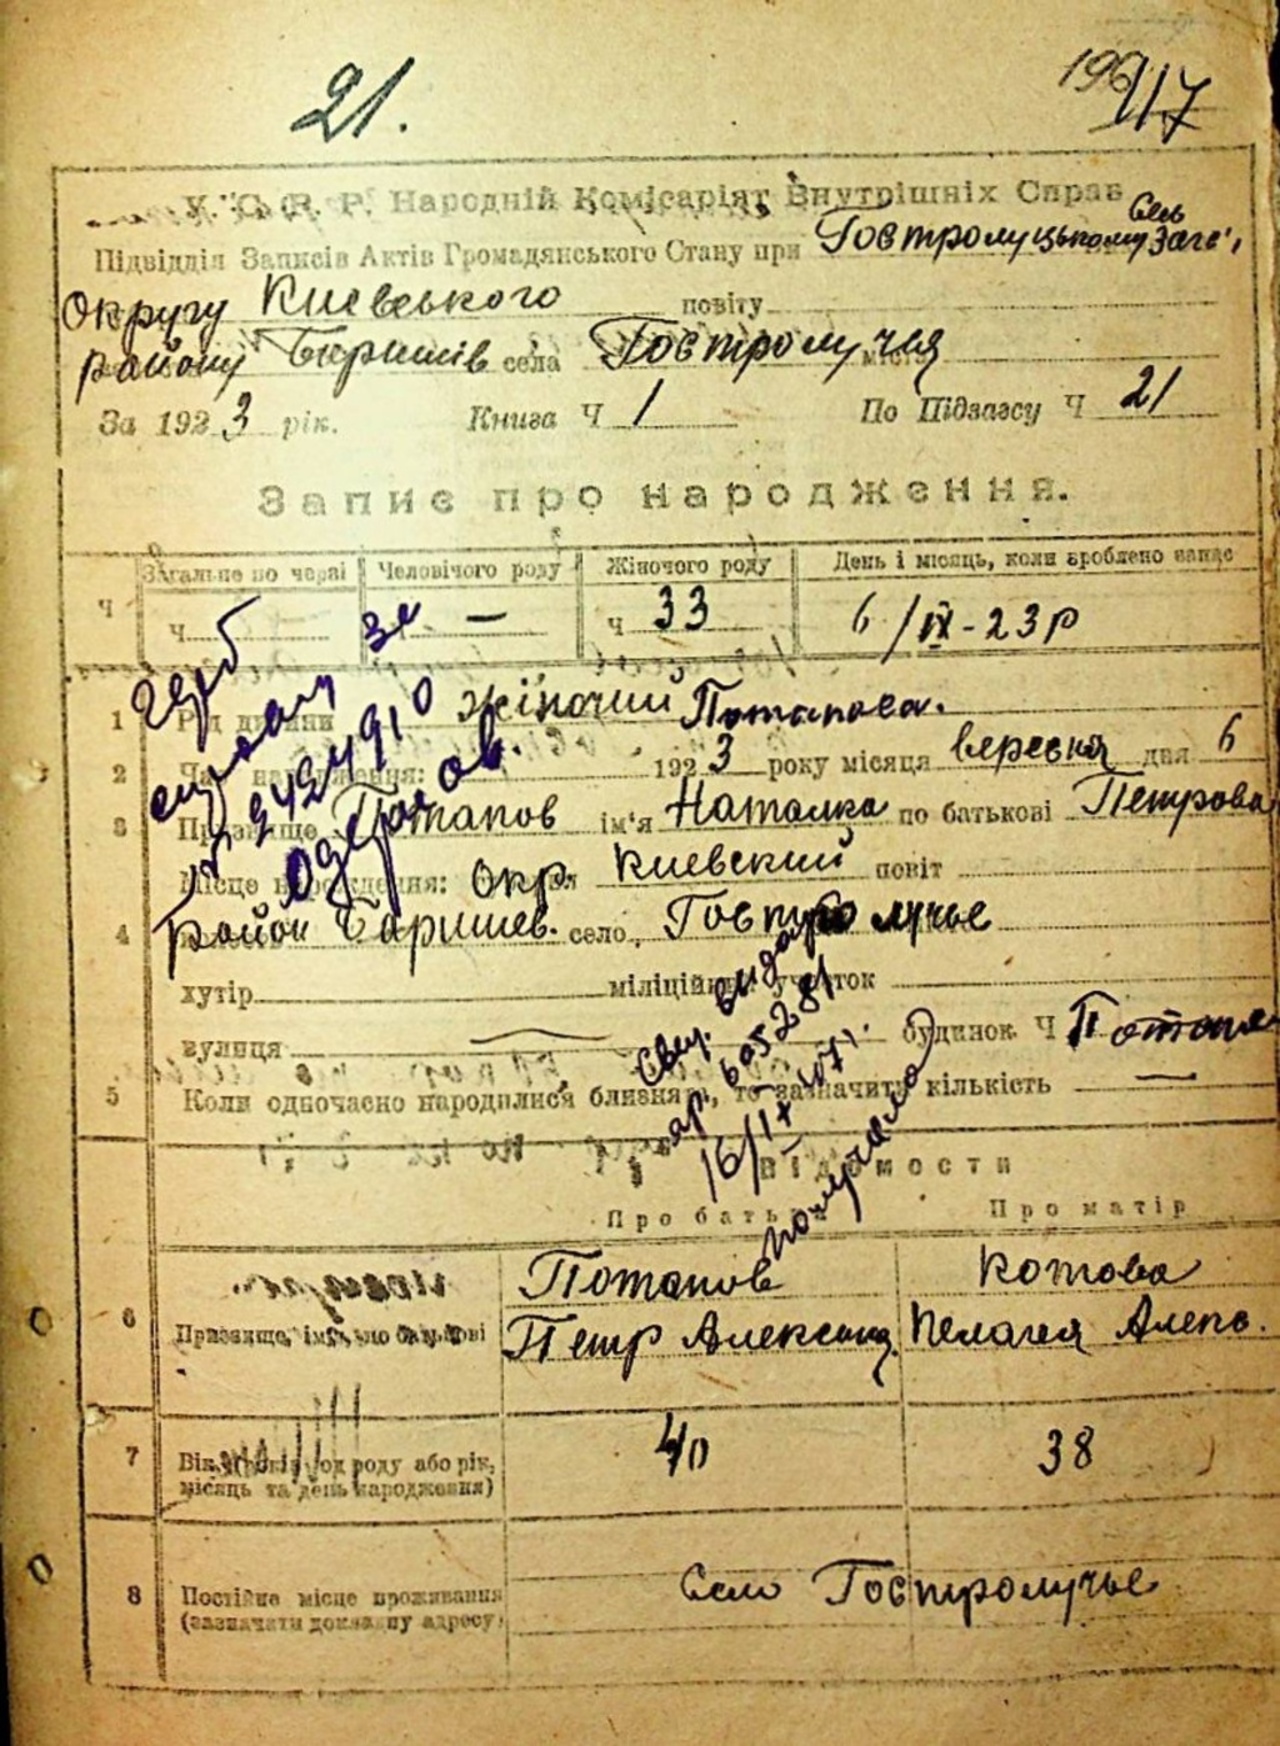 21.
117
У. С. Р. Р. Народній Комісаріят Внутрішніх Справ
Підвідділ Записів Актів Громадянського Стану при Гостролуцькому Сель
Округу Киевського повіту
району Баришів села Гостролуччя
За 1923 рік. Книга Ч 1 По Підзагсу Ч 21
Запис про народження.
Загальне по черзі Человічого роду Жіночого роду День і місяць, коли зроблено запис
Ч Ч — Ч 33 6/IX-23р
1 Рід дитини жіночий Потапова.
2 Час народження: 1923 року місяця вересня дня 6
3 Призвище Потапов ім'я Наталка по батькові Петрова
Місце народження: Окр. Киевский повіт
4 район Баришев. село, Гостролучье
хутір міліційний участок
вулиця — будинок Ч
5 Коли одночасно народилися близнята, то зазначити кількість —
герб
№ 2424910
Свид. выдано
605281
16/IX 1071.
получела
Відомости
Про батька Про матір
Потапов Котова
6 Призвище, ім'я, по батькові Петр Александ. Пелагея Алекс.
7 Вік (скільки од роду або рік, місяць та день народження) 40 38
8 Постійне місце проживання
(зазначати докладну адресу) Село Гостролучье